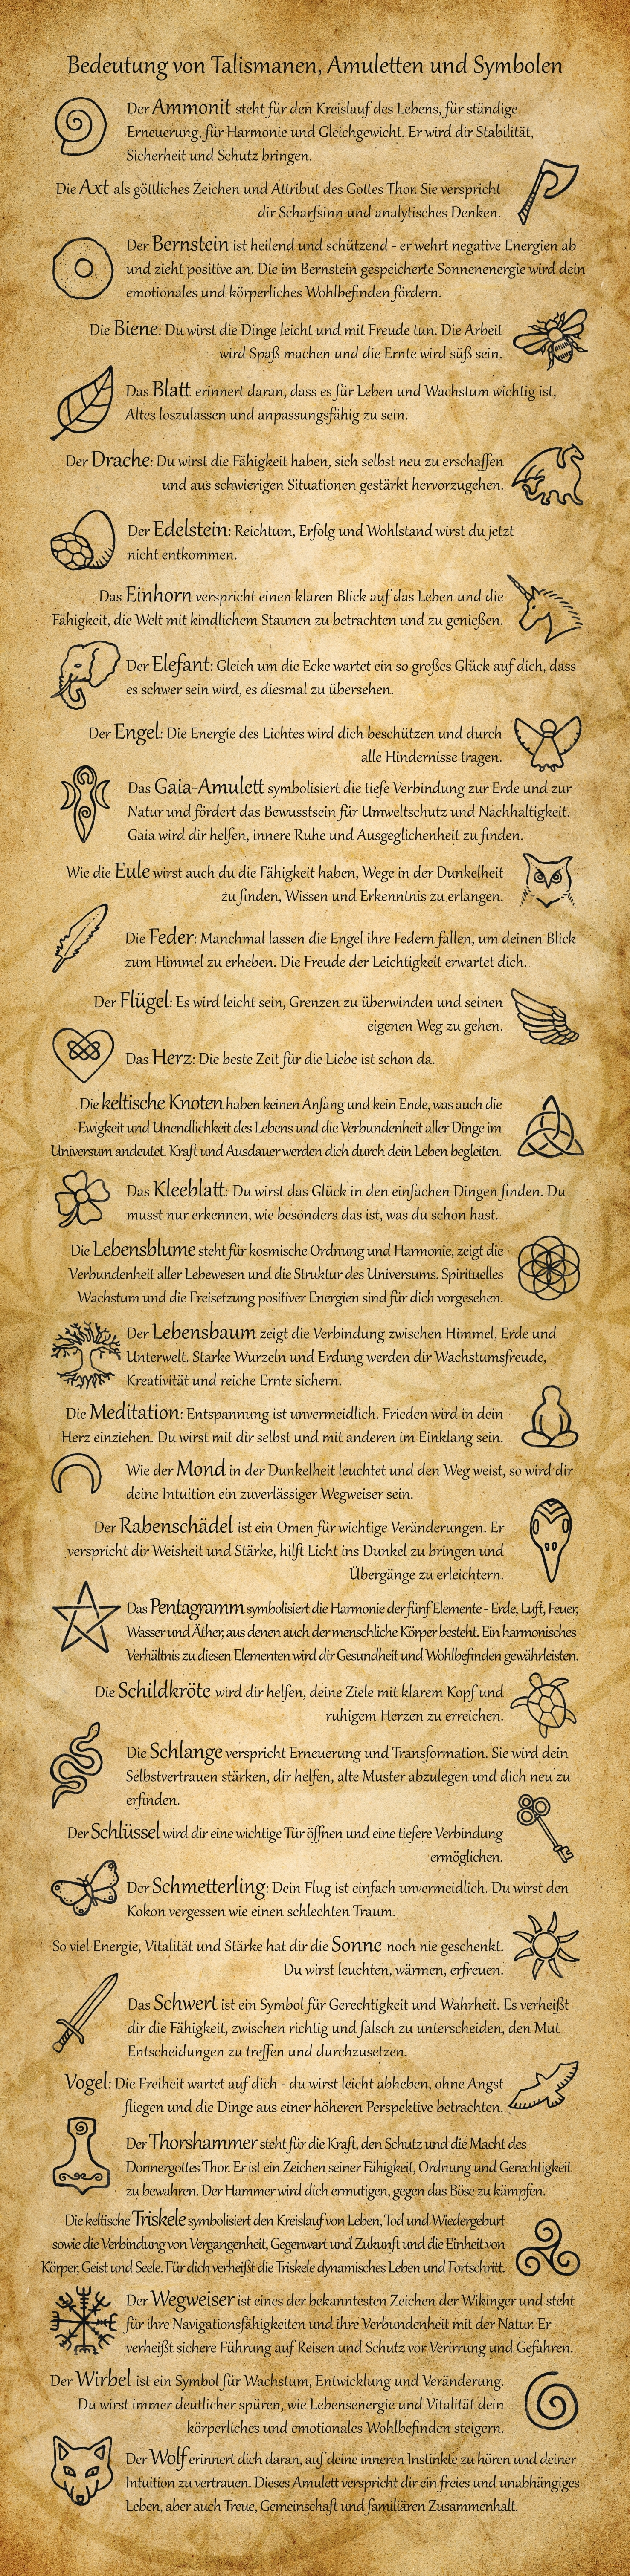 Bedeutung von Talismanen, Amuletten und Symbolen
Der Ammonit steht für den Kreislauf des Lebens, für ständige
Erneuerung, für Harmonie und Gleichgewicht. Er wird dir Stabilität,
Sicherheit und Schutz bringen.
Die Axt als göttliches Zeichen und Attribut des Gottes Thor. Sie verspricht
dir Scharfsinn und analytisches Denken.
Der Bernstein ist heilend und schützend - er wehrt negative Energien ab
und zieht positive an. Die im Bernstein gespeicherte Sonnenenergie wird dein
emotionales und körperliches Wohlbefinden fördern.
Die Biene: Du wirst die Dinge leicht und mit Freude tun. Die Arbeit
wird Spaß machen und die Ernte wird süß sein.
Das Blatt erinnert daran, dass es für Leben und Wachstum wichtig ist,
Altes loszulassen und anpassungsfähig zu sein.
Der Drache: Du wirst die Fähigkeit haben, sich selbst neu zu erschaffen
und aus schwierigen Situationen gestärkt hervorzugehen.
Der Edelstein: Reichtum, Erfolg und Wohlstand wirst du jetzt
nicht entkommen.
Das Einhorn verspricht einen klaren Blick auf das Leben und die
Fähigkeit, die Welt mit kindlichem Staunen zu betrachten und zu genießen.
Der Elefant: Gleich um die Ecke wartet ein so großes Glück auf dich, dass
es schwer sein wird, es diesmal zu übersehen.
Der Engel: Die Energie des Lichtes wird dich beschützen und durch
alle Hindernisse tragen.
Das Gaia-Amulett symbolisiert die tiefe Verbindung zur Erde und zur
Natur und fördert das Bewusstsein für Umweltschutz und Nachhaltigkeit.
Gaia wird dir helfen, innere Ruhe und Ausgeglichenheit zu finden.
Wie die Eule wirst auch du die Fähigkeit haben, Wege in der Dunkelheit
zu finden, Wissen und Erkenntnis zu erlangen.
Die Feder: Manchmal lassen die Engel ihre Federn fallen, um deinen Blick
zum Himmel zu erheben. Die Freude der Leichtigkeit erwartet dich.
Der Flügel: Es wird leicht sein, Grenzen zu überwinden und seinen
eigenen Weg zu gehen.
Das Herz: Die beste Zeit für die Liebe ist schon da.
Die keltische Knoten haben keinen Anfang und kein Ende, was auch die
Ewigkeit und Unendlichkeit des Lebens und die Verbundenheit aller Dinge im
Universum andeutet. Kraft und Ausdauer werden dich durch dein Leben begleiten.
Das Kleeblatt: Du wirst das Glück in den einfachen Dingen finden. Du
musst nur erkennen, wie besonders das ist, was du schon hast.
Die Lebensblume steht für kosmische Ordnung und Harmonie, zeigt die
Verbundenheit aller Lebewesen und die Struktur des Universums. Spirituelles
Wachstum und die Freisetzung positiver Energien sind für dich vorgesehen.
Der Lebensbaum zeigt die Verbindung zwischen Himmel, Erde und
Unterwelt. Starke Wurzeln und Erdung werden dir Wachstumsfreude,
Kreativität und reiche Ernte sichern.
Die Meditation: Entspannung ist unvermeidlich. Frieden wird in dein
Herz einziehen. Du wirst mit dir selbst und mit anderen im Einklang sein.
Wie der Mond in der Dunkelheit leuchtet und den Weg weist, so wird dir
deine Intuition ein zuverlässiger Wegweiser sein.
Der Rabenschädel ist ein Omen für wichtige Veränderungen. Er
verspricht dir Weisheit und Stärke, hilft Licht ins Dunkel zu bringen und
Übergänge zu erleichtern.
Das Pentagramm symbolisiert die Harmonie der fünf Elemente - Erde, Luft, Feuer,
Wasser und Äther, aus denen auch der menschliche Körper besteht. Ein harmonisches
Verhältnis zu diesen Elementen wird dir Gesundheit und Wohlbefinden gewährleisten.
Die Schildkröte wird dir helfen, deine Ziele mit klarem Kopf und
ruhigem Herzen zu erreichen.
Die Schlange verspricht Erneuerung und Transformation. Sie wird dein
Selbstvertrauen stärken, dir helfen, alte Muster abzulegen und dich neu zu
erfinden.
Der Schlüssel wird dir eine wichtige Tür öffnen und eine tiefere Verbindung
ermöglichen.
Der Schmetterling: Dein Flug ist einfach unvermeidlich. Du wirst den
Kokon vergessen wie einen schlechten Traum.
So viel Energie, Vitalität und Stärke hat dir die Sonne noch nie geschenkt.
Du wirst leuchten, wärmen, erfreuen.
Das Schwert ist ein Symbol für Gerechtigkeit und Wahrheit. Es verheißt
dir die Fähigkeit, zwischen richtig und falsch zu unterscheiden, den Mut
Entscheidungen zu treffen und durchzusetzen.
Vogel: Die Freiheit wartet auf dich - du wirst leicht abheben, ohne Angst
fliegen und die Dinge aus einer höheren Perspektive betrachten.
Der Thorshammer steht für die Kraft, den Schutz und die Macht des
Donnergottes Thor. Er ist ein Zeichen seiner Fähigkeit, Ordnung und Gerechtigkeit
zu bewahren. Der Hammer wird dich ermutigen, gegen das Böse zu kämpfen.
Die keltische Triskele symbolisiert den Kreislauf von Leben, Tod und Wiedergeburt
sowie die Verbindung von Vergangenheit, Gegenwart und Zukunft und die Einheit von
Körper, Geist und Seele. Für dich verheißt die Triskele dynamisches Leben und Fortschritt.
Der Wegweiser ist eines der bekanntesten Zeichen der Wikinger und steht
für ihre Navigationsfähigkeiten und ihre Verbundenheit mit der Natur. Er
verheißt sichere Führung auf Reisen und Schutz vor Verirrung und Gefahren.
Der Wirbel ist ein Symbol für Wachstum, Entwicklung und Veränderung.
Du wirst immer deutlicher spüren, wie Lebensenergie und Vitalität dein
körperliches und emotionales Wohlbefinden steigern.
Der Wolf erinnert dich daran, auf deine inneren Instinkte zu hören und deiner
Intuition zu vertrauen. Dieses Amulett verspricht dir ein freies und unabhängiges
Leben, aber auch Treue, Gemeinschaft und familiären Zusammenhalt.